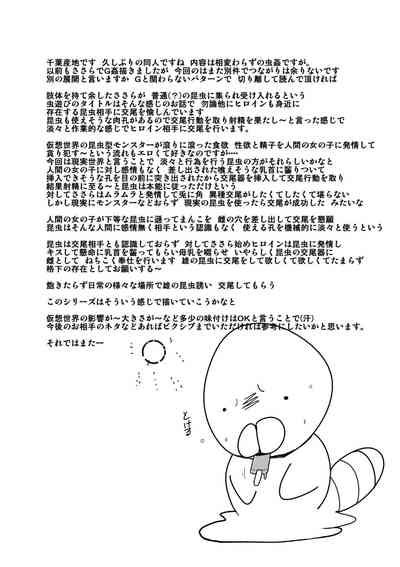 千葉産地です　久しぶりの同人ですね　内容は相変わらずの虫姦ですが。
以前もささらでG姦描きましたが　今回のはまた別件でつながりは余りないです
別の展開と言いますか　Gと関わらないパターンで　切り離して読んで頂ければ
肢体を持て余したささらが　普通(？)の昆虫に集られ受け入れるという
虫遊びのタイトルはそんな感じのお話で　勿論他ヒロインも身近に
存在する昆虫相手に交尾を愉しんでいます
昆虫も使えそうな肉孔があるので交尾行動を取り射精を果たし～と言った感じで
淡々と作業的な感じでヒロイン相手に交尾を行います。
仮想世界の昆虫型モンスターが滾りに滾った食欲　性欲と精子を人間の女の子に発情して
貪り犯す～という流れもエロくて好きなのですが……
今回は現実世界と言うことで　淡々と行為を行う昆虫の方がそれらしいかなと
人間の女の子に対し感情もなく　差し出された喰えそうな乳首に齧りついて
挿入できそうな孔を目の前に突き出されたから交尾器を挿入して交尾行動を取り
結果射精に至る～と昆虫は本能に従っただけという
対してささらはムラムラと発情して兎に角　異種交尾がしたくてしたくて堪らない
しかし現実にモンスターなどおらず　現実の昆虫を使ったら交尾が成功した　みたいな
人間の女の子が下等な昆虫に謙ってまんこを　雌の穴を差し出して交尾を懇願
昆虫はそんな人間に感情無く相手という認識もなく　使える孔を機械的に淡々と使うという
昆虫は交尾相手とも認識しておらず　対してささら始めヒロインは昆虫に発情し
キスして懸命に乳首を齧ってもらい母乳を啜らせ　いやらしく昆虫の交尾器に
雌として　ねちこく奉仕を行います　雄の昆虫に交尾をして欲しくて欲しくてたまらず
格下の存在としてお願いする～
飽きたらず日常の様々な場所で雄の昆虫誘い　交尾してもらう
このシリーズはそういう感じで描いていこうかなと
仮想世界の影響が～大きさが～など多少の味付けはOKと言うことで(汗)
今後のお相手のネタなどあればピクシブまでいただければ参考にしたいかと思います。
それではまたー
とける